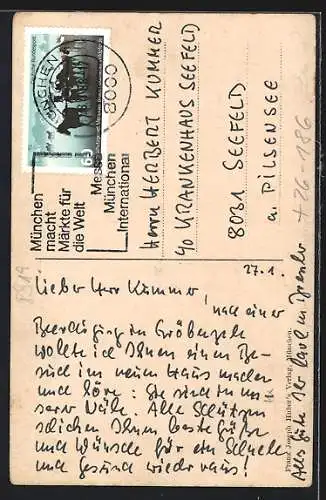 MÜNCHEN
8000
Deutsche Bundespost
München
macht
Märkte für
die Welt
Messe
München
International
Herrn HERBERT KUMMER
40 KRANKENHAUS SEEFELD
8031 SEEFELD
a. PILSENSEE
+26-186
27.1.
Lieber Herr Kummer,
nach einer
Beerdigung in Gröbenzell
wollte ich Ihnen einen Be-
such im neuen Haus machen
und höre: Sie sind in un
serer Nähe. Alle Schützen
schicken Ihnen beste Grüße
und Wünsche für ein Schnelle
und gesund wieder raus!
Alles Gute Ihr
Franz Joseph Huber's Verlag, München.